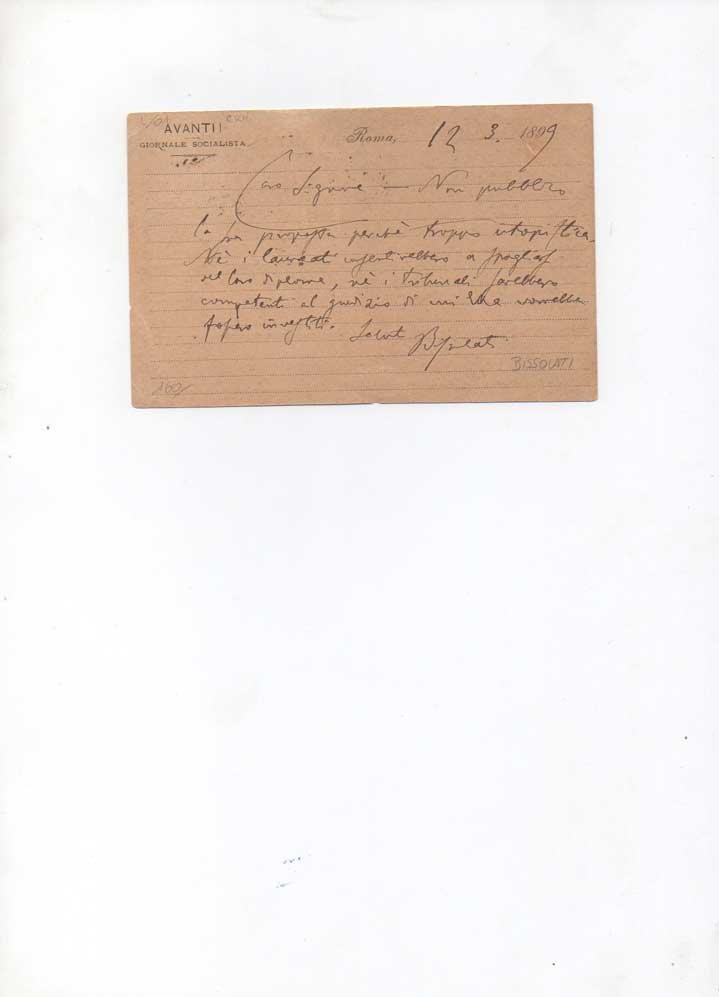 AVANTI!
GIORNALE SOCIALISTA
Roma, 12 3. 1899
Caro Signore — Non pubblico
la sua proposta perchè troppo utopistica.
Nè i laureati consentirebbero a spogliarsi
del loro diploma, nè i tribunali sarebbero
competenti al giudizio di cui Ella vorrebbe
fossero investiti. Saluti
Bissolati
BISSOLATI
160/